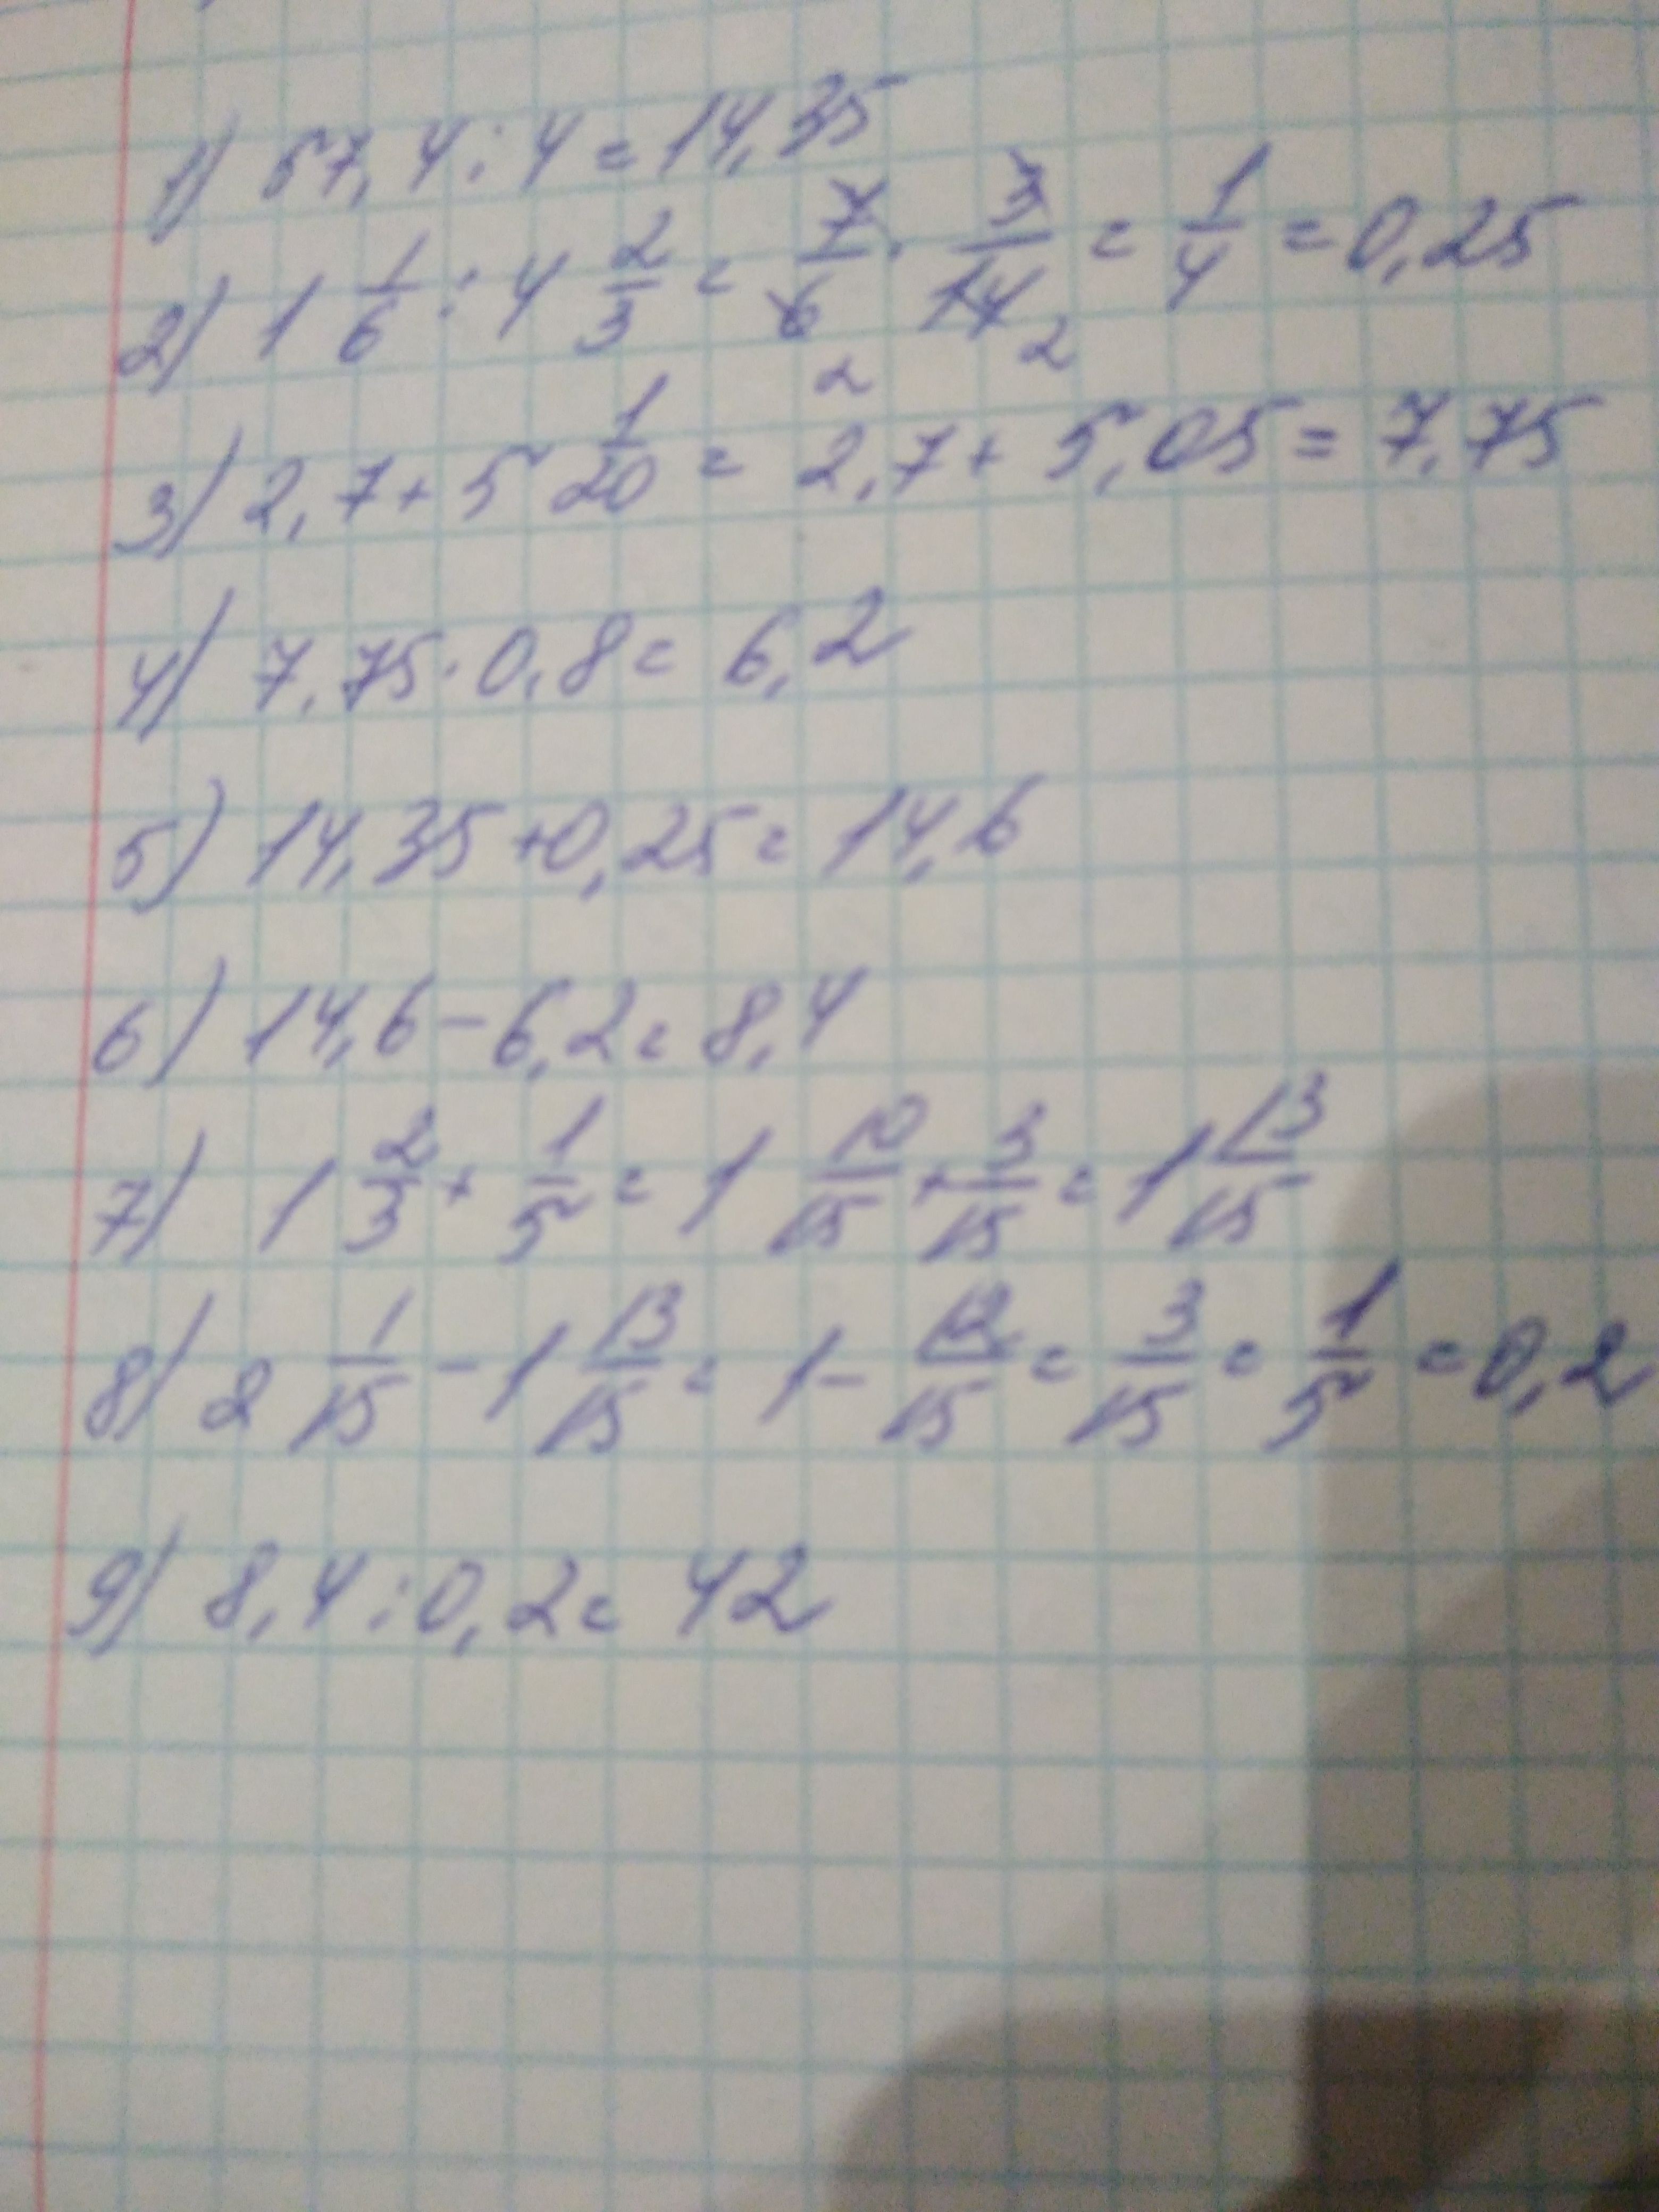 1) 57,4 : 4 = 14,35
2) 1 1/6 : 4 2/3 = 7/6 · 3/14 = 1/4 = 0,25
2 2
3) 2,7 + 5 1/20 = 2,7 + 5,05 = 7,75
4) 7,75 · 0,8 = 6,2
5) 14,35 + 0,25 = 14,6
6) 14,6 - 6,2 = 8,4
7) 1 2/3 + 1/5 = 1 10/15 + 3/15 = 1 13/15
8) 2 1/15 - 1 13/15 = 1 - 12/15 = 3/15 = 1/5 = 0,2
9) 8,4 : 0,2 = 42